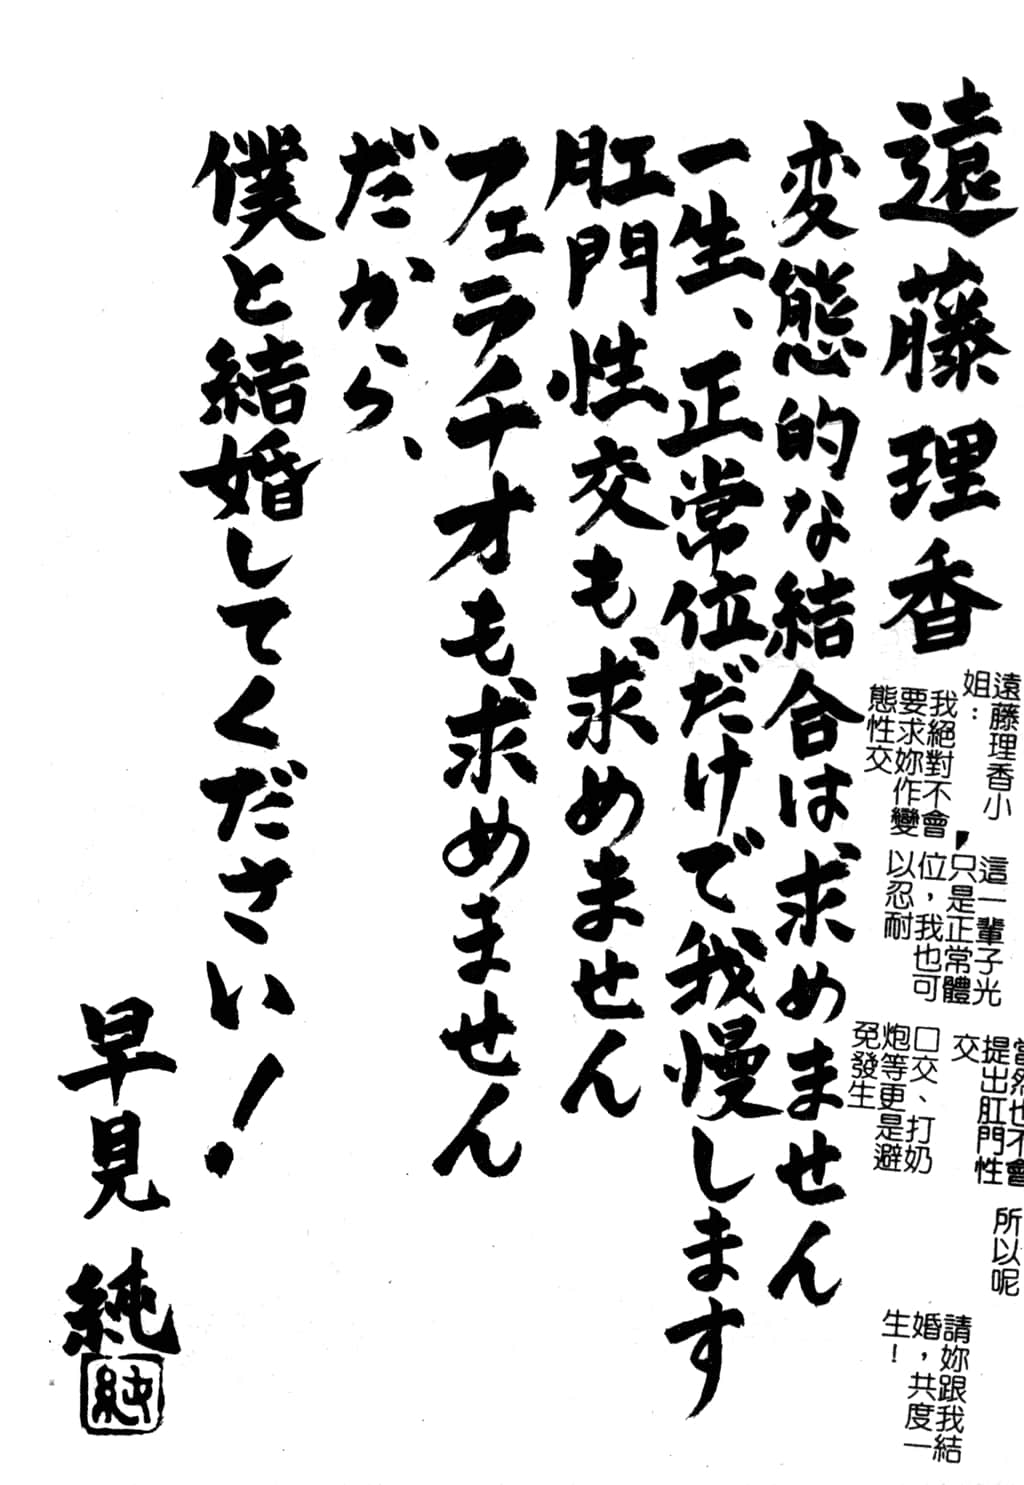 遠藤理香
変態的な結合は、求めません
一生、正常位だけで我慢します
肛門性交も、求めません
フェラチオも求めません
だから、
僕と結婚してください!
早見純
純
遠藤理香小
姐:
我絕對不會,
要求妳作變
態性交
這一輩子光
只是正常體
位,我也可
以忍耐
當然也不會
提出肛門性
交
口交、打奶
炮等更是避
免發生
所以呢
請妳跟我結
婚,共度一
生!